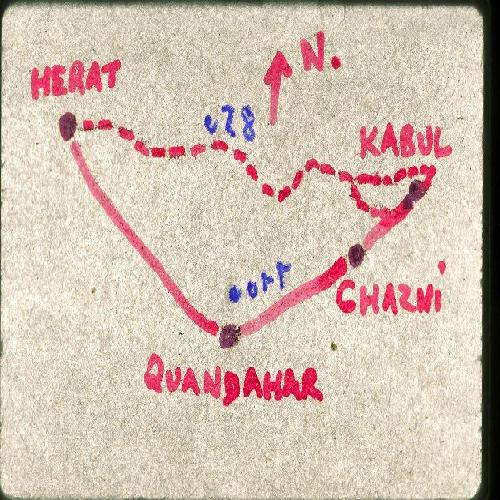 N.
HERAT
KABUL
CHAZNI
QUANDAHAR